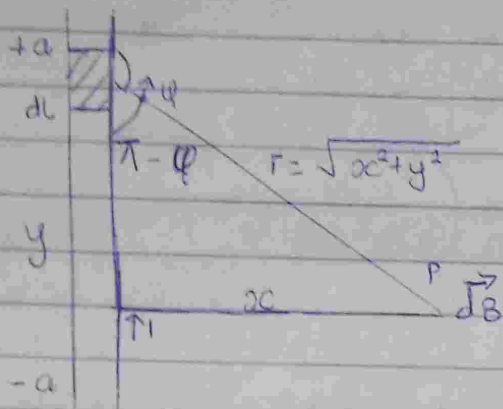 +a
dl
φ
π - φ
r = √x²+y²
y
P
x
dB⃗
↑I
-a